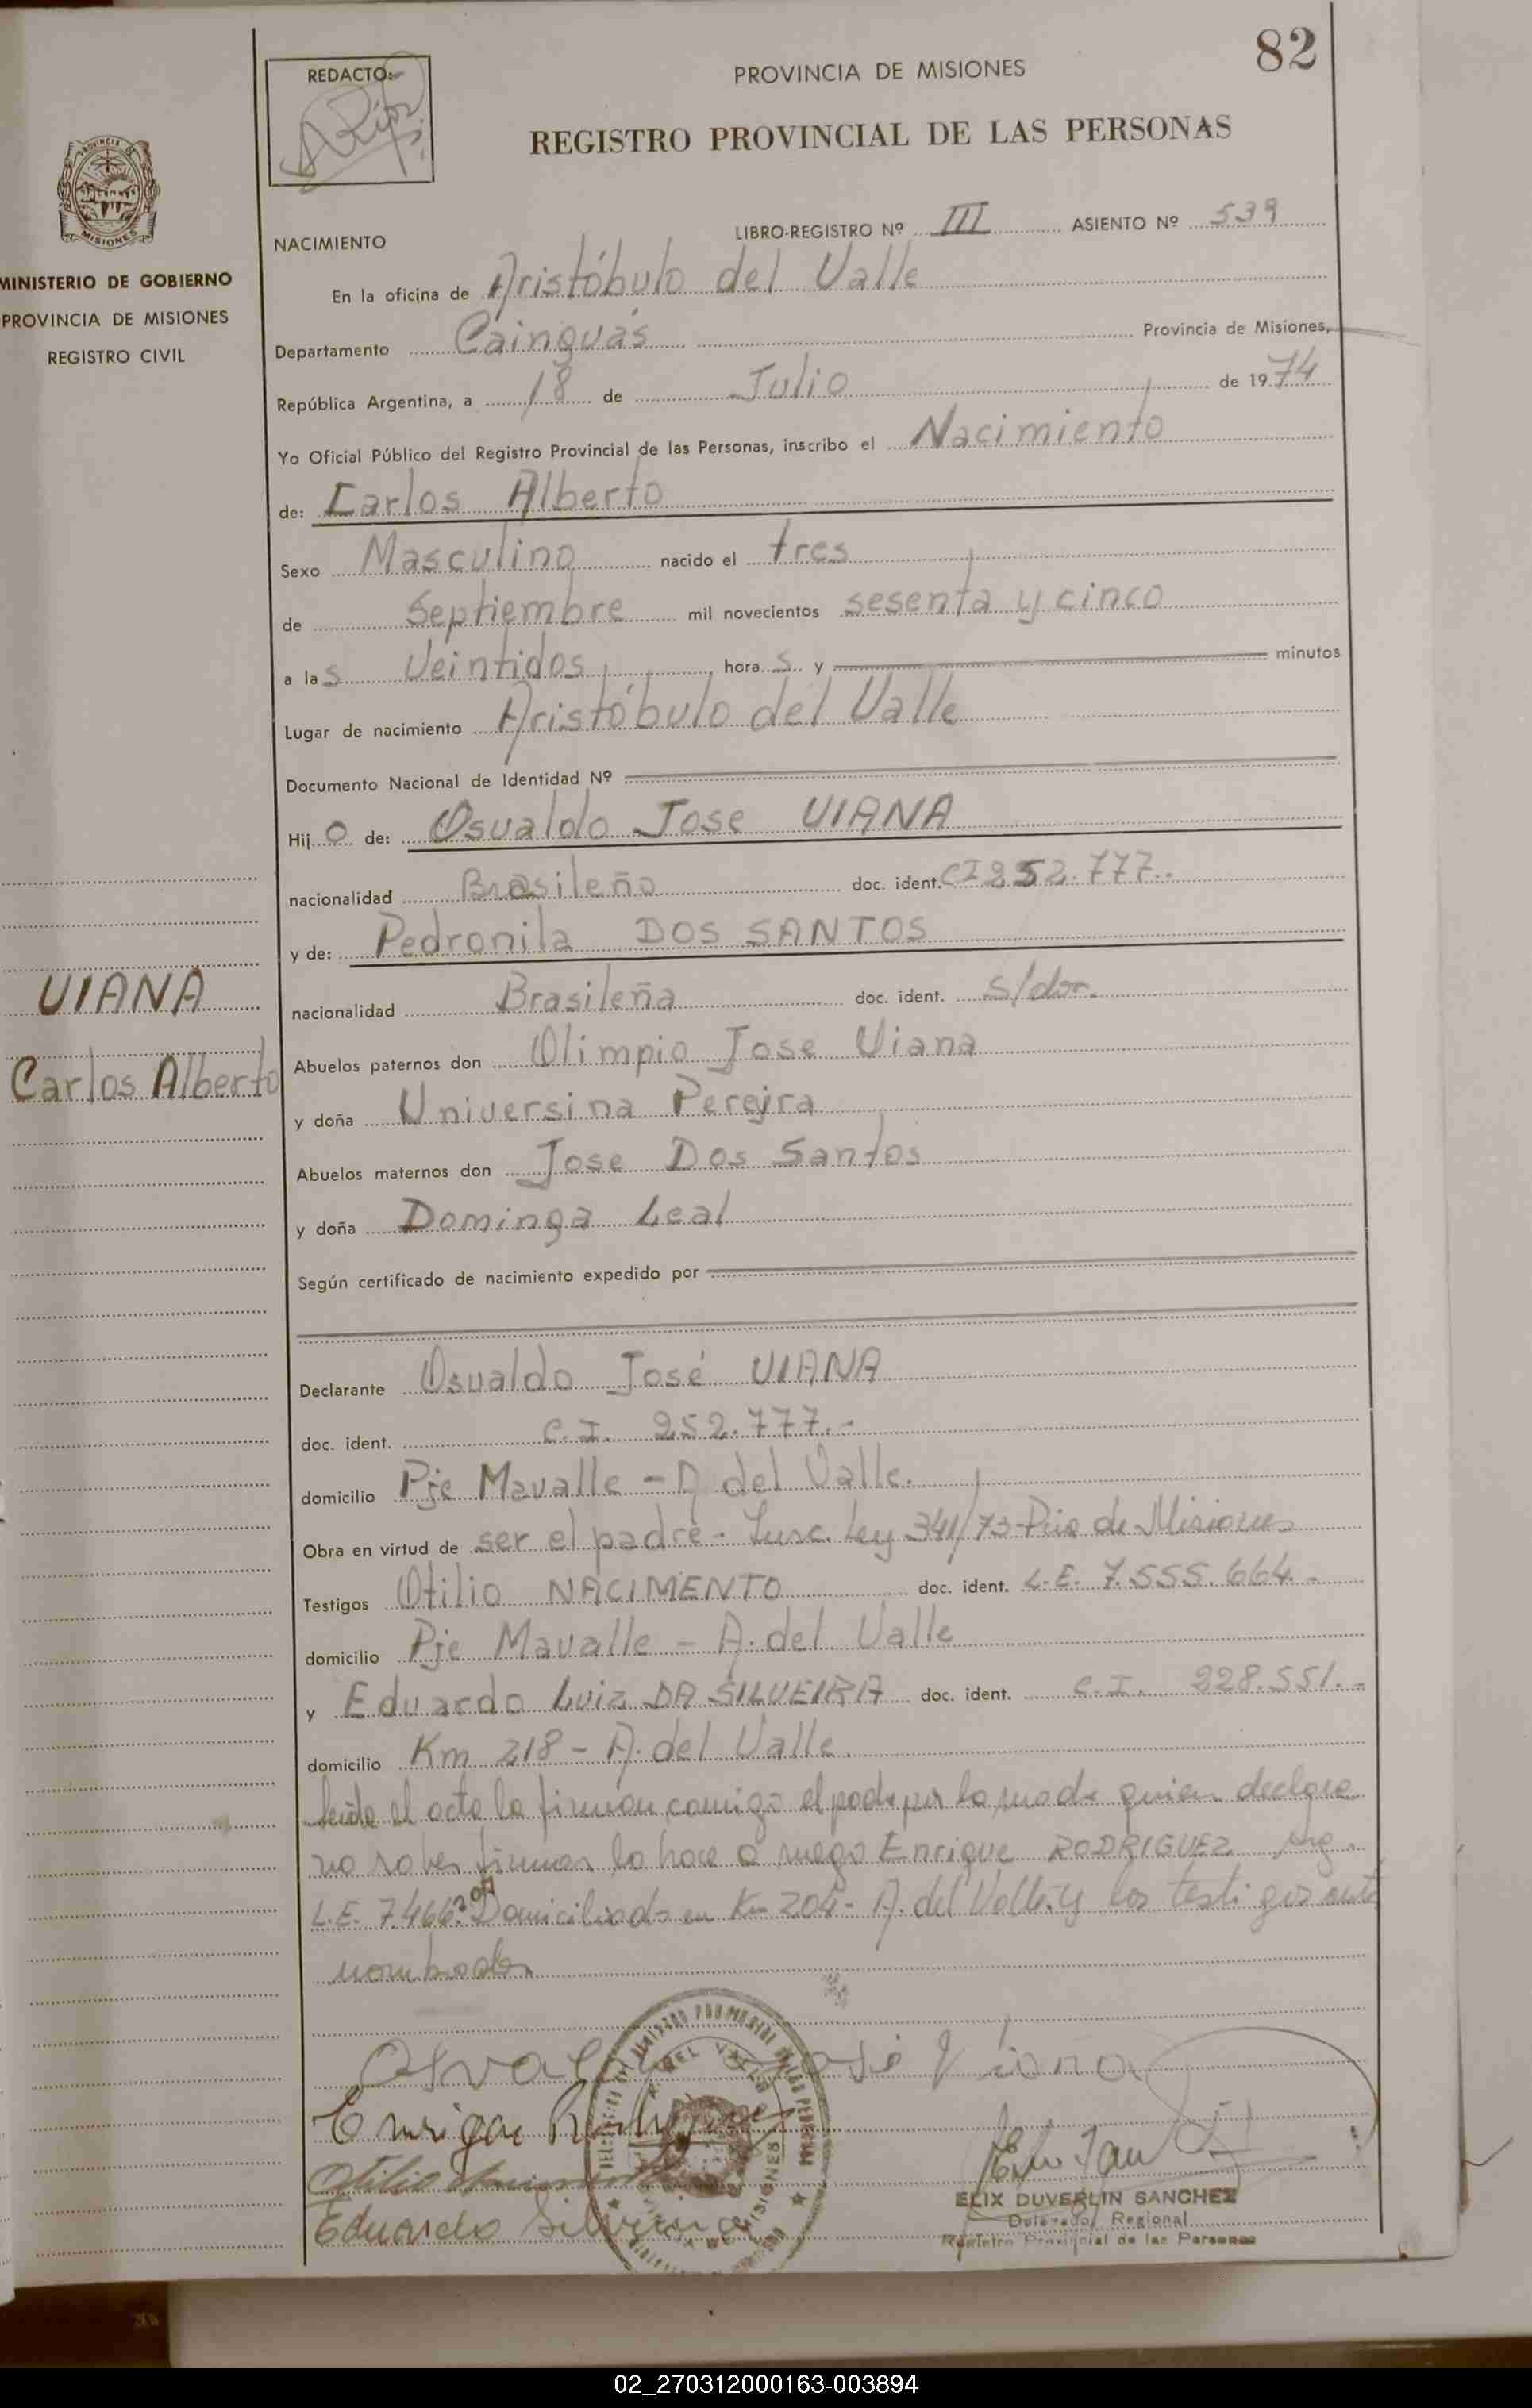 82
REDACTO:
PROVINCIA DE MISIONES
REGISTRO PROVINCIAL DE LAS PERSONAS
MISIONES
MINISTERIO DE GOBIERNO
PROVINCIA DE MISIONES
REGISTRO CIVIL
NACIMIENTO
LIBRO-REGISTRO Nº III ASIENTO Nº 539
En la oficina de Aristóbulo del Valle
Departamento Cainguás Provincia de Misiones,
República Argentina, a 18 de Julio de 1974
Yo Oficial Público del Registro Provincial de las Personas, inscribo el Nacimiento
de: Carlos Alberto
Sexo Masculino nacido el tres
de Septiembre mil novecientos sesenta y cinco
a las Veintidos horas y minutos
Lugar de nacimiento Aristóbulo del Valle
Documento Nacional de Identidad Nº
Hijo de: Osvaldo Jose VIANA
nacionalidad Brasileño doc. ident. CI 252.777.-
y de: Pedronila DOS SANTOS
VIANA
Carlos Alberto
nacionalidad Brasileña doc. ident. s/doc.
Abuelos paternos don Olimpio Jose Viana
y doña Universina Pereira
Abuelos maternos don Jose Dos Santos
y doña Dominga Leal
Según certificado de nacimiento expedido por
Declarante Osvaldo José VIANA
doc. ident. C.I. 252.777.-
domicilio Pje Mavalle - A del Valle.
Obra en virtud de ser el padre - Insc. Ley 341/73 - Pcia de Misiones
Testigos Otilio NACIMENTO doc. ident. L.E. 7.555.664.-
domicilio Pje Mavalle - A. del Valle
y Eduardo Luiz DA SILVEIRA doc. ident. C.I. 228.551.-
domicilio Km 218 - A. del Valle.
leido el acta la firman conmigo el padre por la madre quien declara
no saber firmar lo hace a ruego Enrique RODRIGUEZ Arg.
L.E. 7.466. Domiciliado en Km 204 - A. del Valle y los testigos ante
nombrados
Osvaldo José Viana
Enrique Rodriguez
Otilio
Eduardo Silveira
ELIX DUVERLIN SANCHEZ
Delegado Regional
Registro Provincial de las Personas
02_270312000163-003894